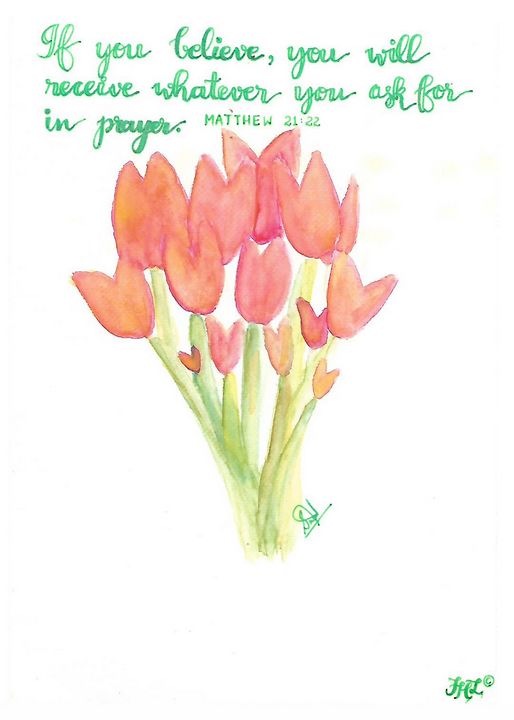 If you believe, you will
receive whatever you ask for
in prayer. MATTHEW 21:22